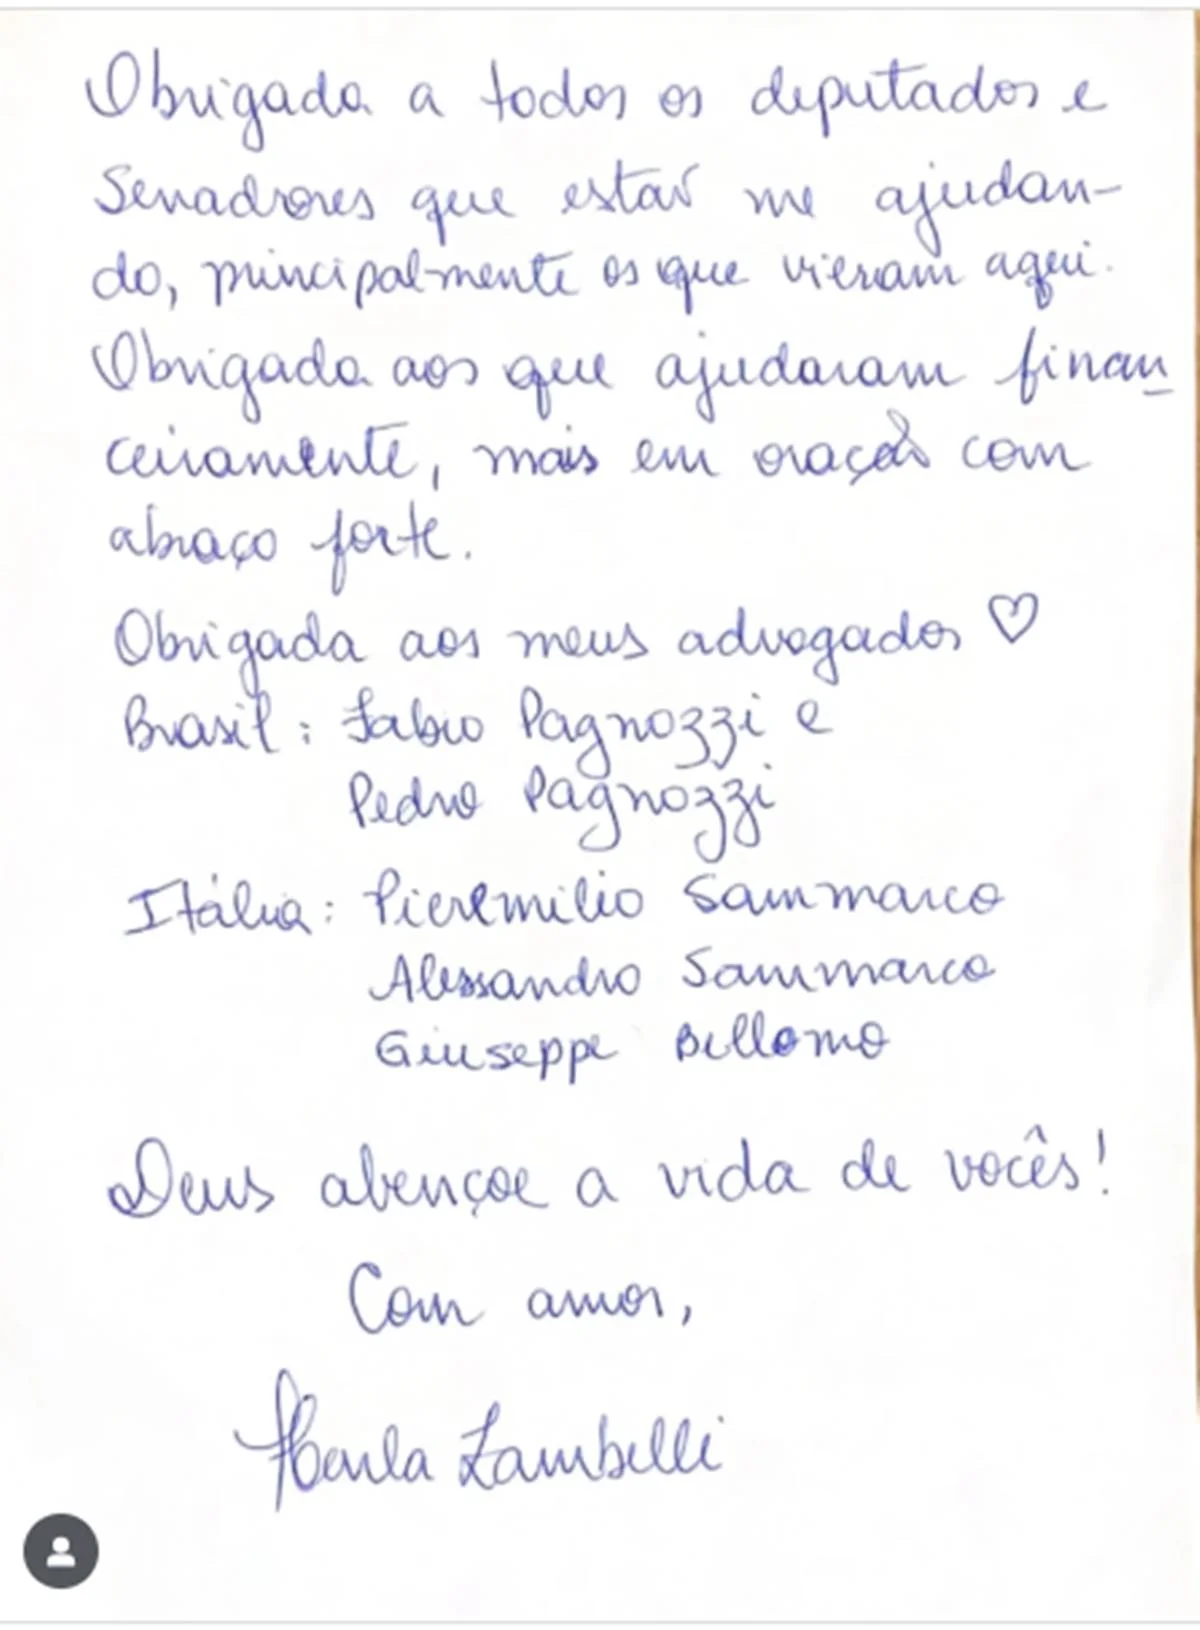 Obrigada a todos os deputados e
Senadores que estão me ajudan-
do, principalmente os que vieram aqui.
Obrigada aos que ajudaram finan
ceiramente, mais em oração com
abraço forte.
Obrigada aos meus advogados ♡
Brasil: Fabio Pagnozzi e
Pedro Pagnozzi
Itália: Pieremilio Sammarco
Alessandro Sammarco
Giuseppe Bellomo
Deus abençoe a vida de vocês!
Com amor,
Carla Zambelli